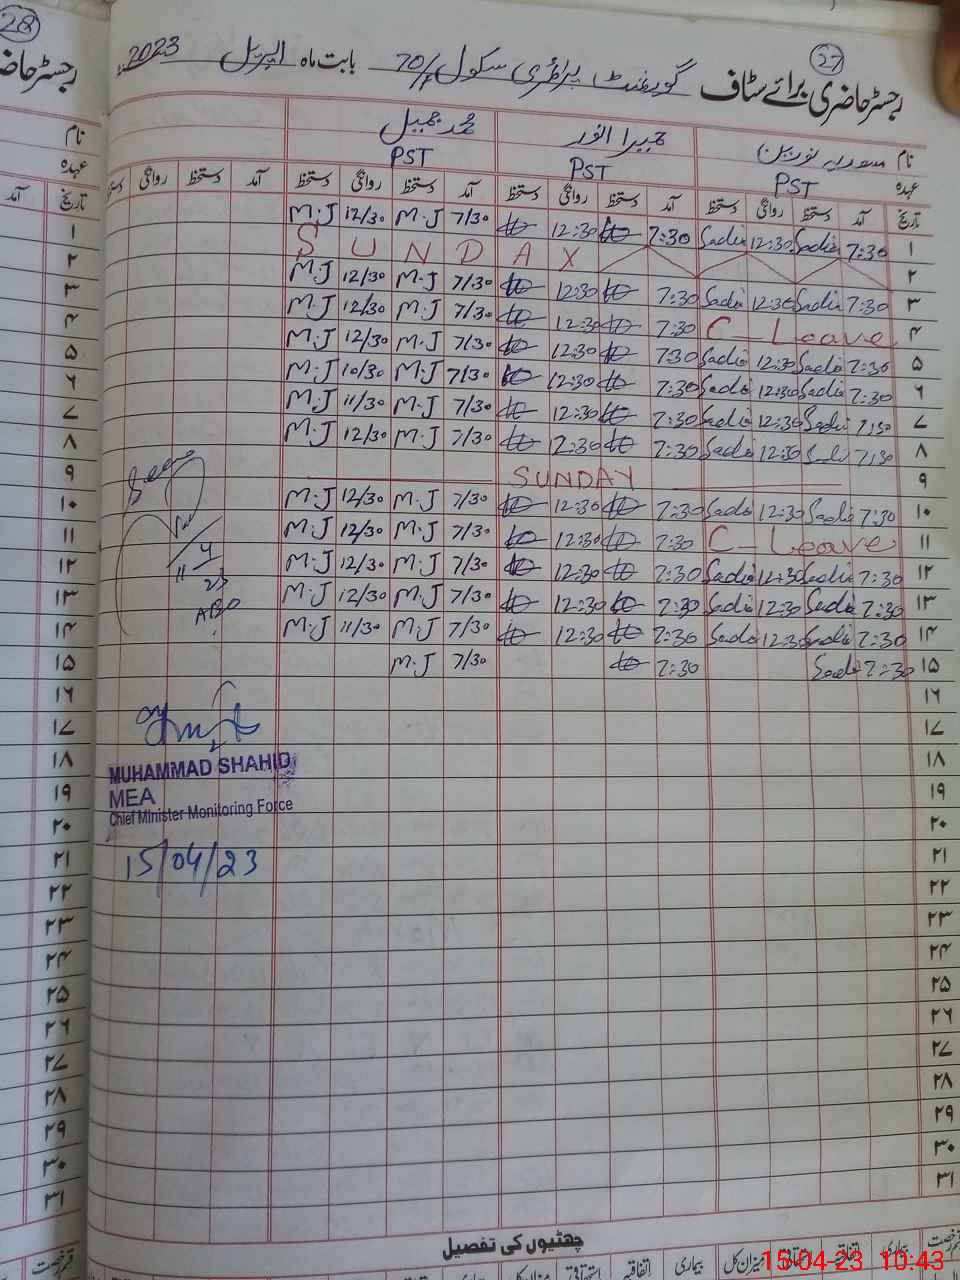 28
27
رجسٹر حاضری برائے سٹاف گورنمنٹ پرائمری سکول 70/ بابت ماہ اپریل 2023
نام سعدیہ نورین حمیرا انور محمد جمیل
عہدہ PST PST PST
تاریخ آمد دستخط روانگی دستخط آمد دستخط روانگی دستخط آمد دستخط روانگی دستخط آمد دستخط روانگی دستخط
۱ 7:30 Sadia 12:30 Sadia 7:30 12:30 7/30 M.J 12/30 M.J
۲ SUNDAY
۳ 7:30 Sadia 12:30 Sadia 7:30 12:30 7/30 M.J 12/30 M.J
۴ C-Leave 7:30 12:30 7/30 M.J 12/30 M.J
۵ 7:30 Sadia 12:30 Sadia 7:30 12:30 7/30 M.J 12/30 M.J
۶ 7:30 Sadia 12:30 Sadia 7:30 12:30 7/30 M.J 10/30 M.J
۷ 7:30 Sadia 12:30 Sadia 7:30 12:30 7/30 M.J 11/30 M.J
۸ 7:30 Sadia 12:30 Sadia 7:30 12:30 7/30 M.J 12/30 M.J
۹ SUNDAY
۱۰ 7:30 Sadia 12:30 Sadia 7:30 12:30 7/30 M.J 12/30 M.J
۱۱ C-Leave 7:30 12:30 7/30 M.J 12/30 M.J
۱۲ 7:30 Sadia 12:30 Sadia 7:30 12:30 7/30 M.J 12/30 M.J
۱۳ 7:30 Sadia 12:30 Sadia 7:30 12:30 7/30 M.J 12/30 M.J
۱۴ 7:30 Sadia 12:30 Sadia 7:30 12:30 7/30 M.J 11/30 M.J
۱۵ 7:30 Sadia 7:30 7/30 M.J
11/4/23
۱۶
۱۷
۱۸
۱۹
۲۰
۲۱
۲۲
۲۳
۲۴
۲۵
۲۶
۲۷
۲۸
۲۹
۳۰
۳۱
MUHAMMAD SHAHID
MEA
Chief Minister Monitoring Force
15/04/23
چھٹیوں کی تفصیل
قسم رخصت بیماری اتفاقیہ استحقاقی میزان کل بیماری اتفاقیہ استحقاقی میزان کل
15-04-23 10:43